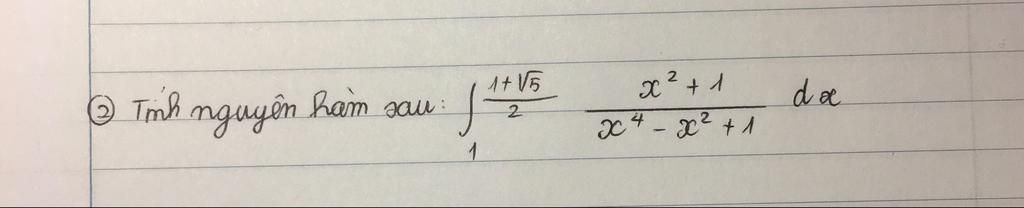 ② Tính nguyên hàm sau: ∫₁^((1+√5)/2) (x² + 1)/(x⁴ - x² + 1) dx